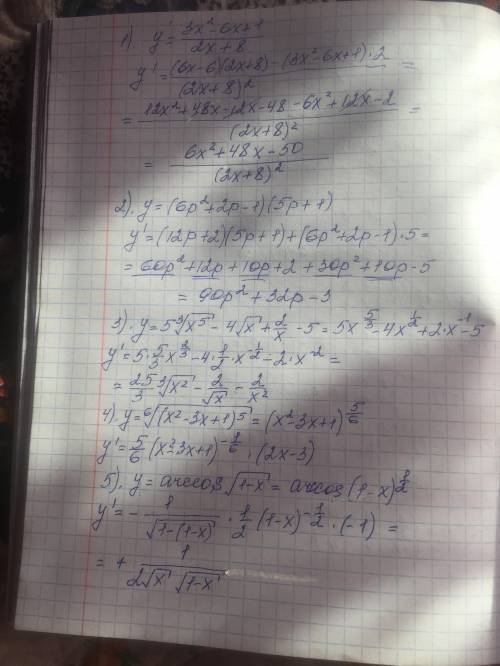 1). y' = (3x²-6x+1)/(2x+8)
y' = ((6x-6)(2x+8) - (3x²-6x+1)·2)/(2x+8)² =
= (12x²+48x-12x-48-6x²+12x-2)/(2x+8)² =
= (6x²+48x-50)/(2x+8)²
2). y=(6p²+2p-1)(5p+1)
y'=(12p+2)(5p+1)+(6p²+2p-1)·5=
= 60p²+12p+10p+2+30p²+10p-5
= 90p²+32p-3
3). y=5∛x⁵ - 4√x + 2/x - 5 = 5x^(5/3) - 4x^(1/2) + 2·x^(-1) - 5
y'=5·5/3 x^(2/3) - 4·1/2·x^(-1/2) - 2·x^(-2) =
= 25/3 ∛x² - 2/√x - 2/x²
4). y=⁶√(x²-3x+1)⁵ = (x²-3x+1)^(5/6)
y'=5/6 (x²-3x+1)^(-1/6) · (2x-3)
5). y=arccos √(1-x) = arccos (1-x)^(1/2)
y' = - 1/√(1-(1-x)) · 1/2 (1-x)^(-1/2) · (-1) =
= + 1/(2√x √(1-x))